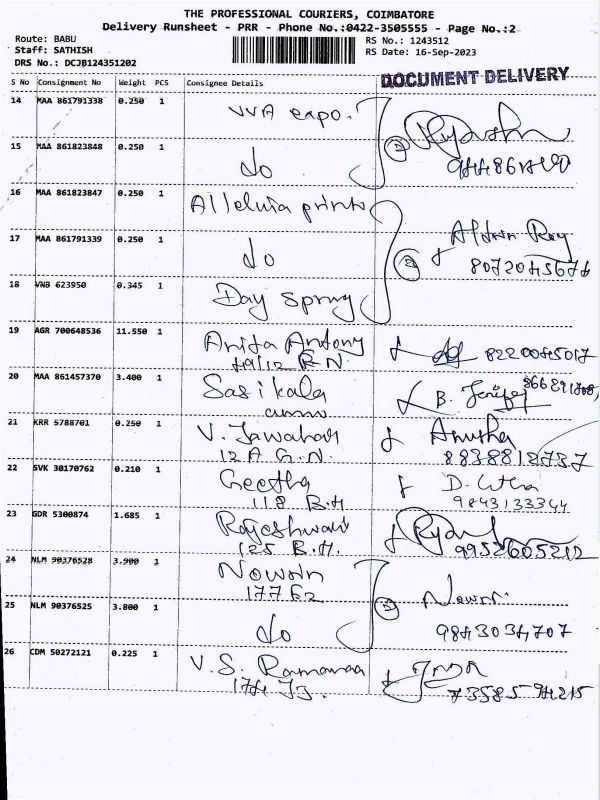 THE PROFESSIONAL COURIERS, COIMBATORE
Delivery Runsheet - PRR - Phone No.:0422-3505555 - Page No.:2
Route: BABU
RS No.: 1243512
Staff: SATHISH
RS Date: 16-Sep-2023
DRS No.: DCJB124351202
DOCUMENT DELIVERY
S No Consignment No Weight PCS Consignee Details
14 MAA 861791338 0.250 1 VVA expo.
15 MAA 861823848 0.250 1 do
16 MAA 861823847 0.250 1 Alleluia prints
17 MAA 861791339 0.250 1 do
8072045676
18 VNB 623950 0.345 1 Day Spring
19 AGR 700648536 11.550 1 Anita Antony 8220045017
20 MAA 861457370 3.400 1 Sasikala B.
21 KRR 5788701 0.250 1 V. Jawahar Anusha
12 A G.N. 8838812737
22 SVK 30170762 0.210 1 Geetha
118 B.H 9843133344
23 GDR 5300874 1.685 1 Rajeshwari
125 B.H. 9952605212
24 NLM 90376528 3.900 1 Nowrin
25 NLM 90376525 3.800 1 do 9843034707
26 CDM 50272121 0.225 1 V. S.